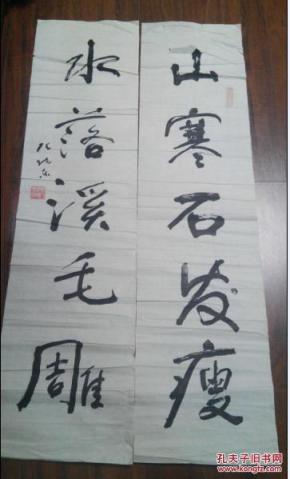 山寒石发瘦
水落溪毛雕
孔夫子旧书网